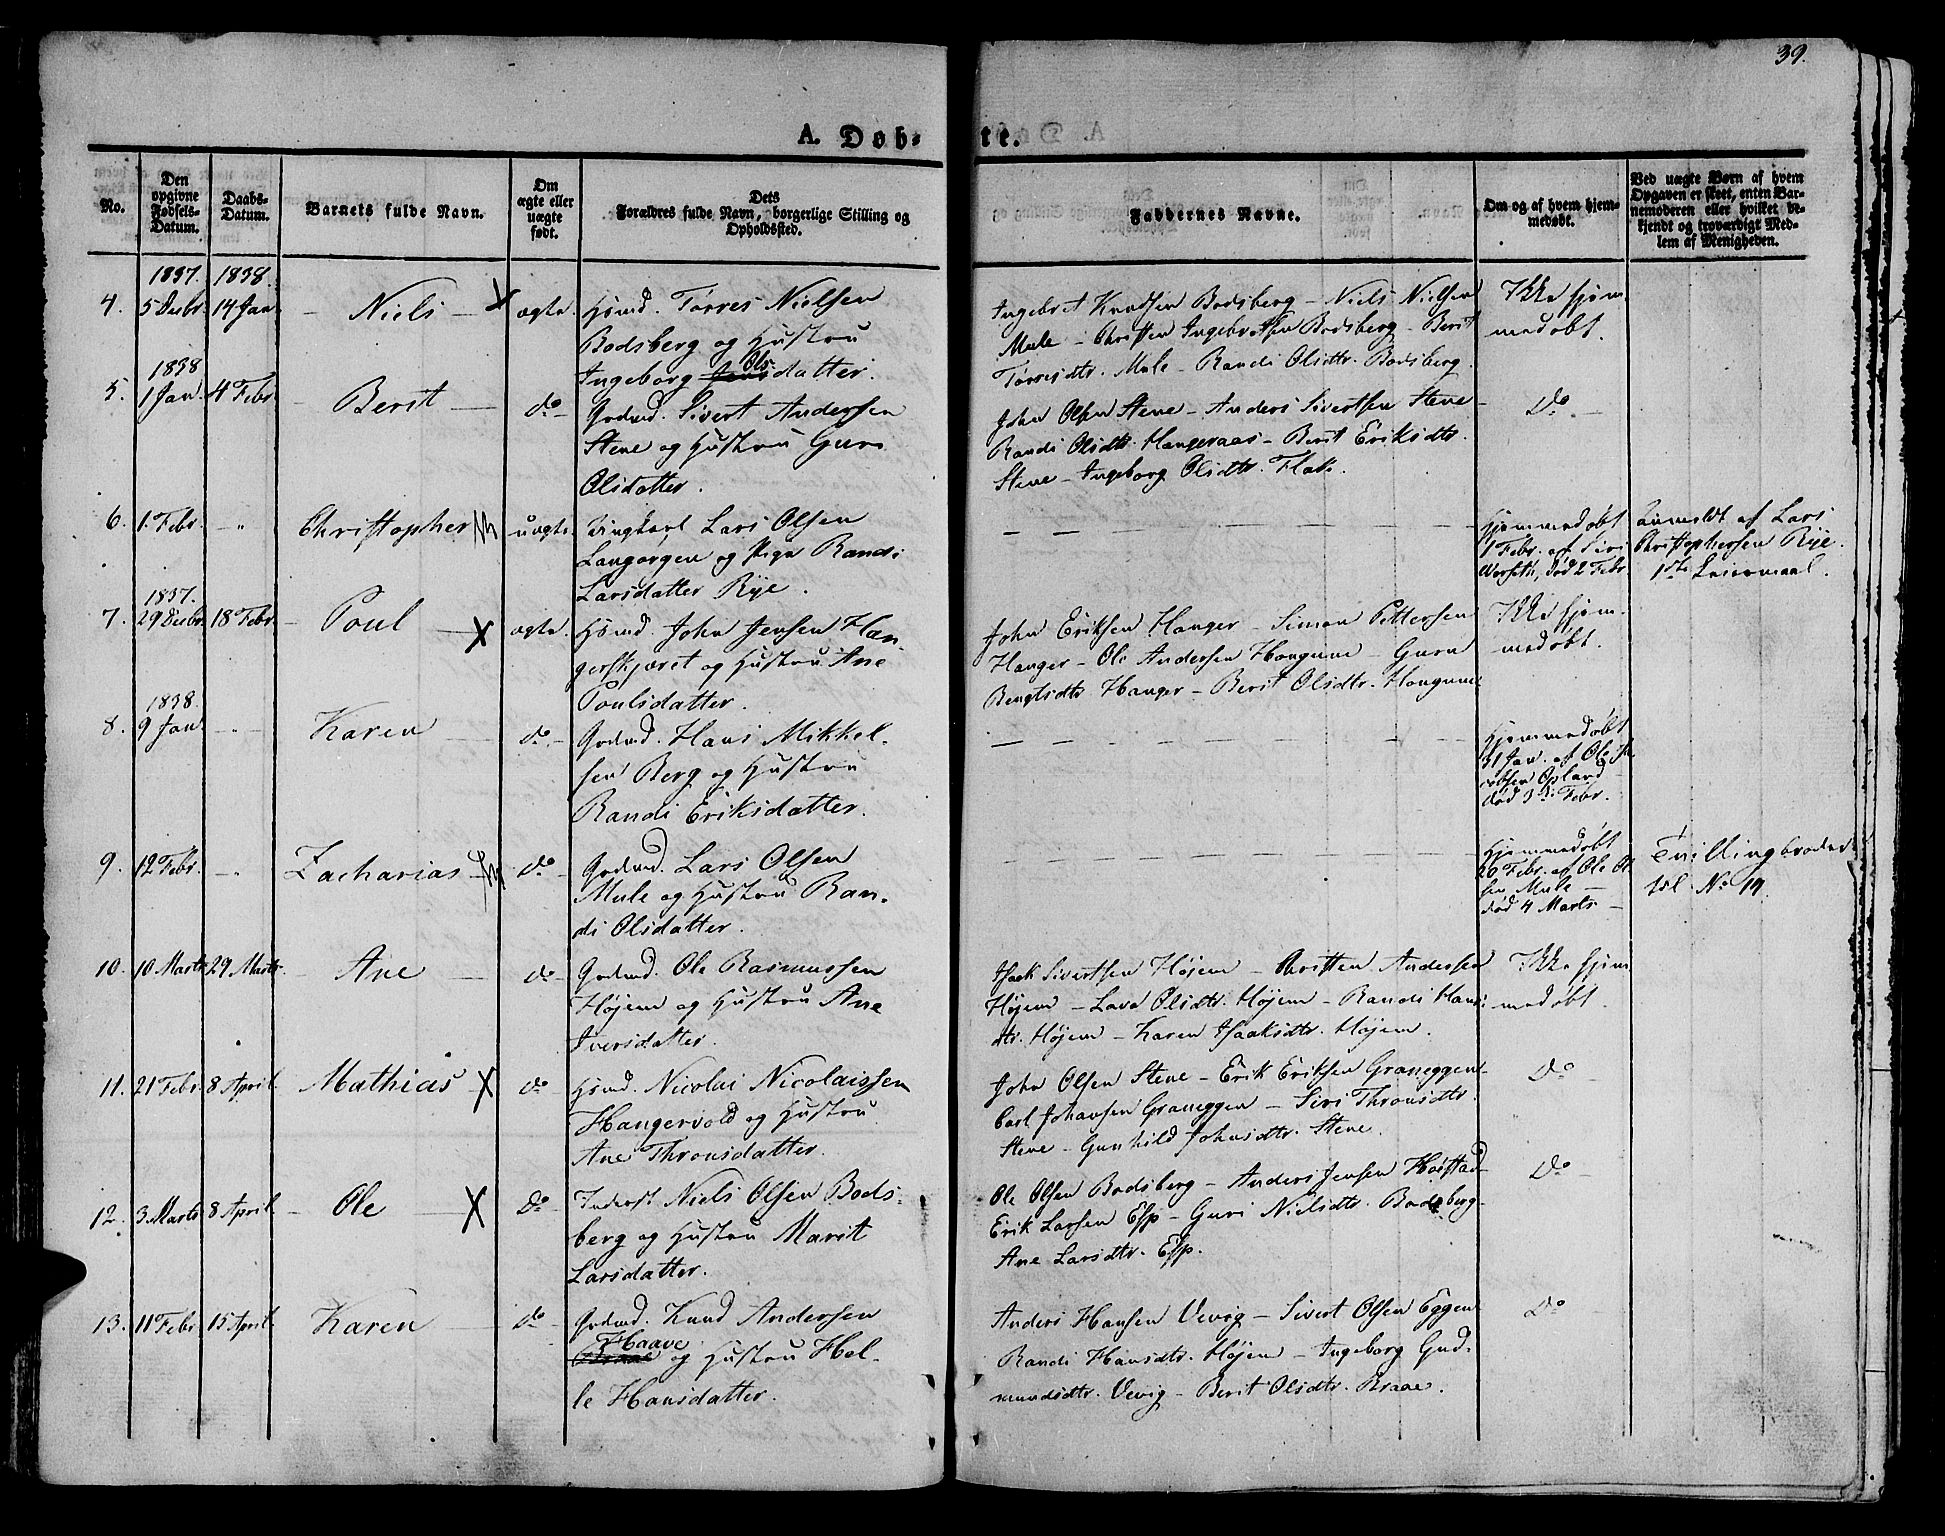 39.
A. Døb-
te.
No.
Den opgivne Fødsels-Datum.
Daabs-Datum.
Barnets fulde Navn.
Om ægte eller uægte født.
Dets Forældres fulde Navn, borgerlige Stilling og Opholdssted.
Faddernes Navne.
Om og af hvem hjem-medøbt.
Ved uægte Børn af hvem Opgaven er skeet, enten Bar-nemoderen eller hvilket be-kjendt og troværdigt Med-lem af Menigheden.
1837. 1838.
4. 5 Decbr. 14 Jan. – Niels – ægte
Huusmd. Tørres Nielsen
Bodsberg og Hustru
Ingeborg Olsdatter.
Ingebret Knudsen Bodsberg – Niels Nielsen
Mule – Christen Ingebretsen Bodsberg – Berit
Tørresdtr. Mule – Randi Olsdtr. Bodsberg.
Ikke hjem
medøbt.
1838
5. 1 Jan. 4 Febr. – Berit – do –
Gaardmd. Sivert Andersen
Stene og Hustru Guru
Olsdatter.
John Olsen Stene – Anders Sivertsen Stene –
Randi Olsdtr. Hangeraas – Berit Eriksdtr.
Stene – Ingeborg Olsdtr. Flak.
Do. –
6. 1. Febr. – „ Christopher uægte.
Ungkarl Lars Olsen
Langørgen og Pige Randi
Larsdatter Rye.
Hjemmedøbt
1 Febr. af Siri
død 2 Febr.
Anmeldt af Lars
Christophersen Rye.
1ste Leiermaal.
1837.
7. 29 Decbr. 18 Febr. – Poul – X ægte.
Huusmd. John Jensen Han-
gerskjæret og Hustru Ane
Poulsdatter.
John Eriksen Hanger – Simon Pettersen
Hanger – Ole Andersen Hongune – Guru
Bengtsdtr. Hanger – Berit Olsdtr. Hongune
Ikke hjem.
medøbt.
1838.
8. 9 Jan. – „ Karen – do –
Gaardmd. Hans Mikkel-
sen Berg og Hustru
Randi Eriksdatter.
Hjemmedøbt
31 Jan. af Ole Ja
cobsen Opland
død 3die Febr.
9. 12 Febr. – „ Zacharias – do
Gaardmd. Lars Olsen
Mule og Hustru Ran-
di Olsdatter.
Hjemmedøbt
20 Febr. af Ole Ol
sen Mule –
død 4 Marts –
Tvillingbroder
til No 14.
10. 10 Marts 29 Marts. – Ane – do –
Gaardmd. Ole Rasmussen
Højem og Hustru Ane
Iversdatter.
Isaak Sivertsen Højem – Christen Andersen
Højem – Olsdtr. Højem – Randi Hans
dtr. Højem – Karen Isaaksdtr. Højem.
Ikke hjem
medøbt.
11. 21 Febr. 8 April. Mathias X do –
Huusmd. Nicolai Nicolaissen
Hangervold og Hustru
Ane Thronsdatter.
John Olsen Stene – Erik Eriksen Graneggen
Carl Johansen Graneggen – Siri Thronsdtr.
Stene – Gunhild Johnsdtr. Stene.
Do –
12. 3 Marts 8 April. – Ole – X Do –
Inderst Niels Olsen Bods-
berg og Hustru Marit
Larsdatter.
Ole Olsen Bodsberg – Anders Jensen Harstad –
Erik Larsen Esp – Guri Nielsdtr. Bodsberg –
Ane Larsdtr. Esp.
Do –
13. 11 Febr. 15 April. Karen – do –
Gaardmd. Knud Andersen
Haave
og Hustru Hel-
le Hansdatter.
Anders Hansen Vevig – Sivert Olsen Eggen
Randi Hansdtr. Højem – Ingeborg Gud-
mundsdtr. Vevig – Berit Olsdtr. Braae.
Do –